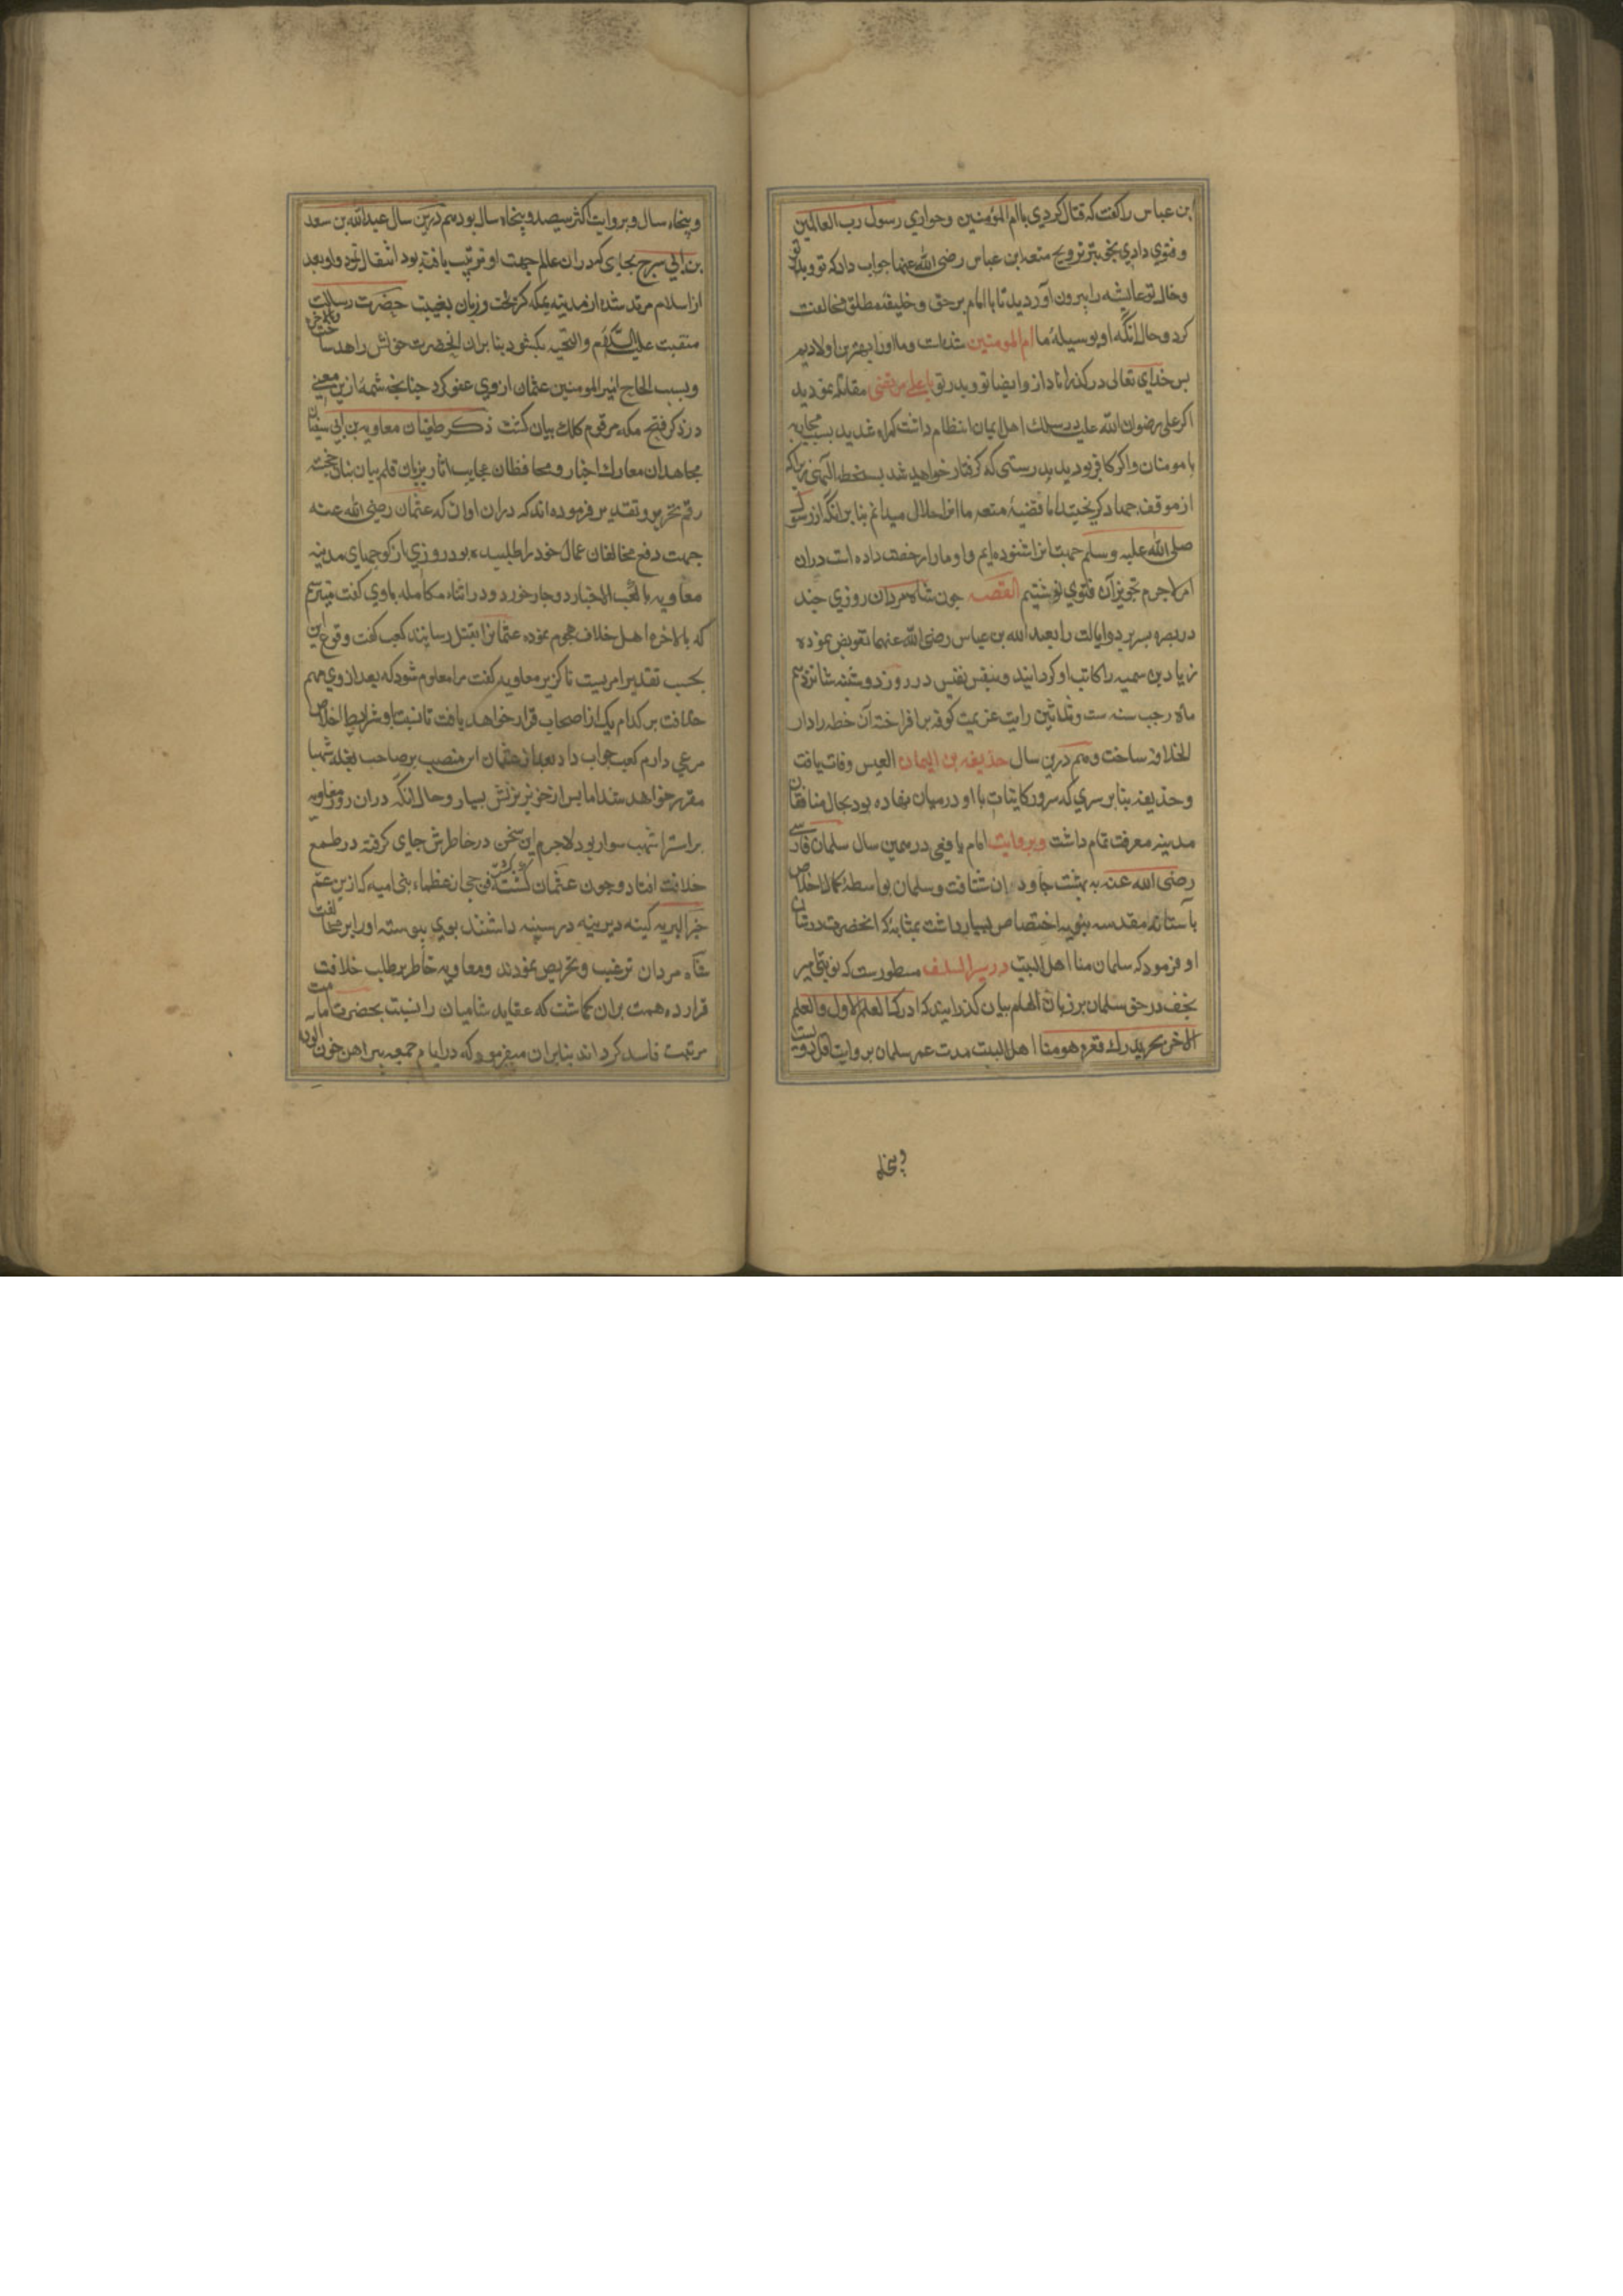 ابن عباس را كفت كه قتال كردي باام المؤمنين وحواري رسول رب العالمين
وفتوي دادي بتجويز تزويج متعه ابن عباس رضي الله عنهما جواب داد كه تو وپدر تو
وخال تو عايشه را بيرون آورديد تا باامام برحق وخليفه مطلق مخالفت
كرد وحال انكه او بوسيله ما ام المومنين شده است وما اورا بهترين اولاديم
پس خداي تعالى دركذراناد ازو وايضا تو وپدر تو با على مرتضى مقاتله نموديد
اكر على رضوان الله عليه درسلك اهل ايمان انتظام داشت كمراه شديد بسبب محاربه
با مومنان واكر كافر بوديد بدرستى كه كرفتار خواهيد شد بسخط الهى زيراكه
از موقف جهاد كريختيد اما قضيه متعه ما انرا حلال ميدانم بنا برانكه از رسول
صلى الله عليه وسلم حهت انرا شنوده ايم واو مارا رخصت داده است دران
امر لاجرم تجويز آن فتوي نوشتيم القصه چون شاه مردان روزي چند
دربصره بسر برد وايالت را بعبد الله بن عباس رضى الله عنهما تفويض نموده
زياد بن سميه را كاتب او كردانيد وبنفس نفيس در روز دوشنبه شانزدهم
ماه رجب سنه ست وثلاثين رايت عزيمت كوفه برافراخته آن خطه را دار
الخلافه ساخت وهم درين سال حذيفه بن اليمان العبس وفات يافت
وحذيفه بنا بر سري كه سرور كاينات با او درميان نهاده بود بحال منافقان
مدينه معرفت تمام داشت وبروايت امام يافعى در همين سال سلمان فارسى
رضى الله عنه به بهشت جاودان شتافت وسلمان بواسطه كمال اخلاص
بآستانه مقدسه نبويه اختصاص بسيار داشت بمثابه كه انحضرت در شان
او فرمود كه سلمان منا اهل البيت در سير السلف مسطورست كه نوبتى امير
نجف در حق سلمان بر زبان الهام بيان كذرانيد كه ادرك العلم الاول والعلم
الاخر بحر يدرك قعره هو منا اهل البيت مدت عمر سلمان بروايت اقل دويست
وپنجاه
وپنجاه سال وبروايت اكثر سيصد وپنجاه سال بود هم درين سال عبد الله بن سعد
بن ابي سرح بجاي كه دران عالم جهت او ترتيب يافته بود انتقال نمود واو بعد
از اسلام مرتد شده از مدينه بمكه كريخت وزبان بغيبت حضرت رسالت
منقبت عليه السلام والتحيه بكشود بنا بران انحضرت خونش را هدر ساخت وبالاخره
وبسبب الحاح امير المومنين عثمان ازوي عفو كرد چنانچه شمه ازين معنى
در ذكر فتح مكه مرقوم كلك بيان كشت ذكر طغيان معاويه بن ابي سفيان
مجاهدان معارك اخبار ومحافظان عجايب اثار بزبان قلم بيان بنان خجسته
رقم تحرير وتقدير فرموده اند كه دران اوان كه عثمان رضى الله عنه
جهت دفع مخالفان عمال خود را طلبيده بود روزي از كوچهاي مدينه
معاويه با كعب الاحبار دوچار خورد ودر اثناء مكالمه باوي كفت ميترسم
كه بالاخره اهل خلاف هجوم نموده عثمانرا بقتل رسانند كعب كفت وقوع اين
بحسب تقدير امريست ناكزير معاويه كفت مرا معلوم شود كه بعد ازوي مهم
خلافت بر كدام يك از اصحاب قرار خواهد يافت تا نسبت باو شرايط اخلاص
مرعي دارم كعب جواب داد بعد از عثمان اين منصب بر صاحب بغله شهبا
مقرر خواهد شد اما پس از خونريزش بسيار وحال انكه دران روز معاويه
بر استر اشهب سوار بود لاجرم اين سخن در خاطرش جاي كرفته در طمع
خلافت افتاد وچون عثمان كشته كشت مروان حجان عظماء بنى اميه كه از ين عم
خير البريه كينه ديرينه در سينه داشتند بوي پيوسته اورا بر مخالفت
شاه مردان ترغيب وتحريص نمودند ومعاويه خاطر بر طلب خلافت
قرار ده همت بران كماشت كه عقايد شاميان را نسبت بحضرت امامت
مرتبت فاسد كرداند بنابران ميفرمود كه در ايام جمعه پيراهن خون الود